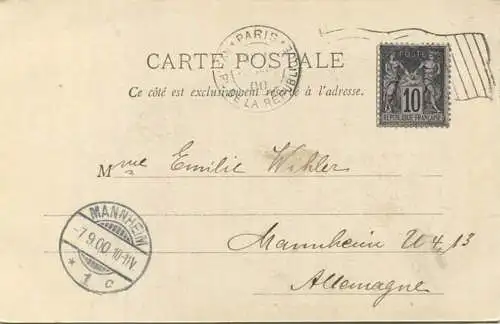 PARIS
PL. DE LA RÉPUBLIQUE
00
CARTE POSTALE
Ce côté est exclusivement réservé à l'adresse.
POSTE
10
REPUBLIQUE FRANÇAISE
Mme Emilie Wihler
MANNHEIM
-7.9.00.10-11V.
* 1 c
Mannheim U 4, 13
Allemagne